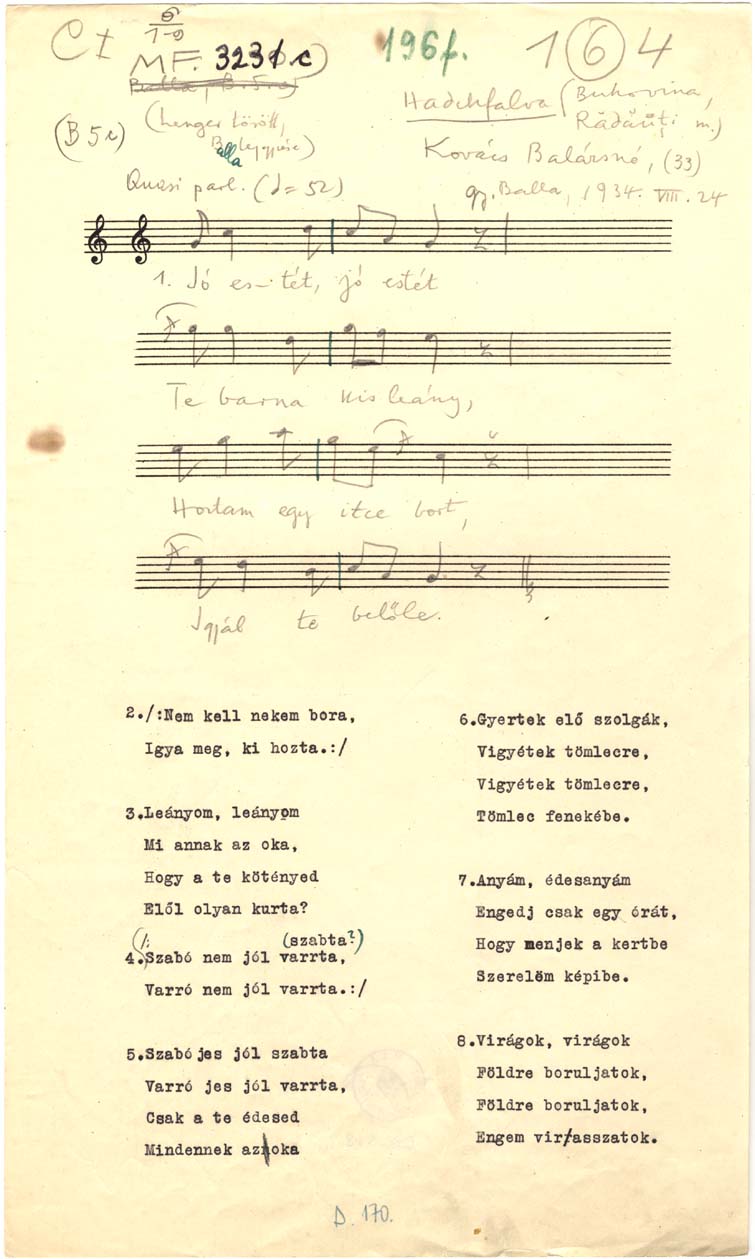 C I
MF. 3231 c)
196f.
1 6 4
Balla, B. 5. c)
(B 5c)
(henger törött,
Balla lejegyzése)
Hadikfalva (Bukovina,
Rădăuţi m.)
Kovács Balázsné, (33)
gy. Balla, 1934. VIII. 24
Quasi parl. (♩= 52)
1. Jó es-tét, jó estét
Te barna kis leány,
Hoztam egy itce bort,
Igyál te belőle.
2./:Nem kell nekem bora,
Igya meg, ki hozta.:/
3.Leányom, leányom
Mi annak az oka,
Hogy a te kötényed
Elől olyan kurta?
(/: (szabta?)
4.Szabó nem jól varrta,
Varró nem jól varrta.:/
5.Szabó jes jól szabta
Varró jes jól varrta,
Csak a te édesed
Mindennek az oka
6.Gyertek elő szolgák,
Vigyétek tömlecre,
Vigyétek tömlecre,
Tömlec fenekébe.
7.Anyám, édesanyám
Engedj csak egy órát,
Hogy menjek a kertbe
Szerelöm képibe.
8.Virágok, virágok
Földre boruljatok,
Földre boruljatok,
Engem virasszatok.
D. 170.